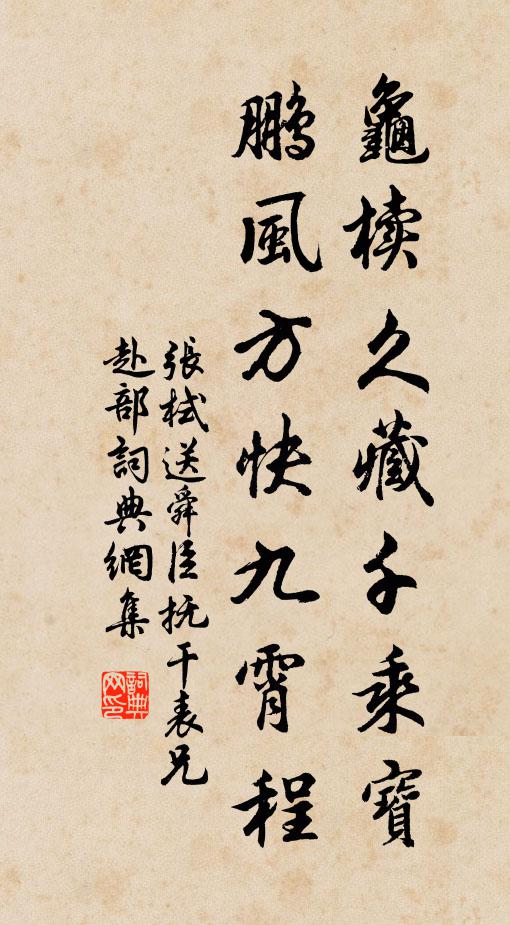 龜櫝久藏千乘寶
鵬風方快九霄程
張栻送舜臣撫干表兄
赴部詞典網集
詞典
网印